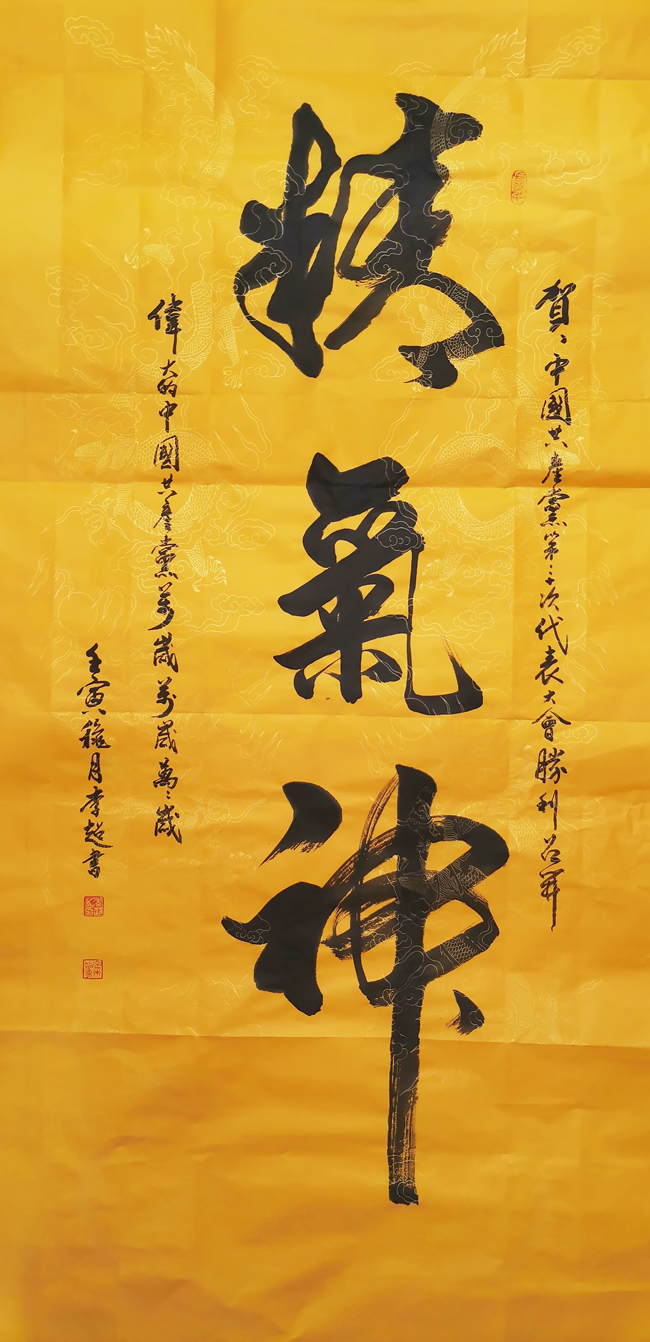 賀、中國共產黨第二十次代表大會勝利召開
精氣神
偉大的中國共產黨萬歲萬歲萬、歲
壬寅穐月李超書